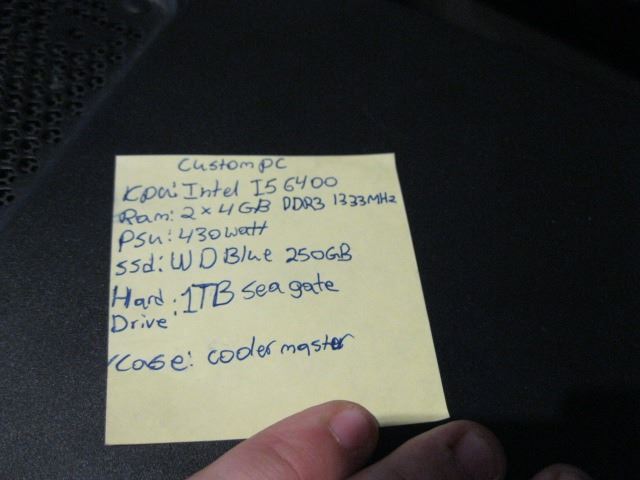 Custom PC
Kpu: Intel I5 6400
Ram: 2x4GB DDR3 1333MHz
Psu: 430watt
SSd: WD Blue 250GB
Hard : 1TB Seagate
Drive
Case: cooler master